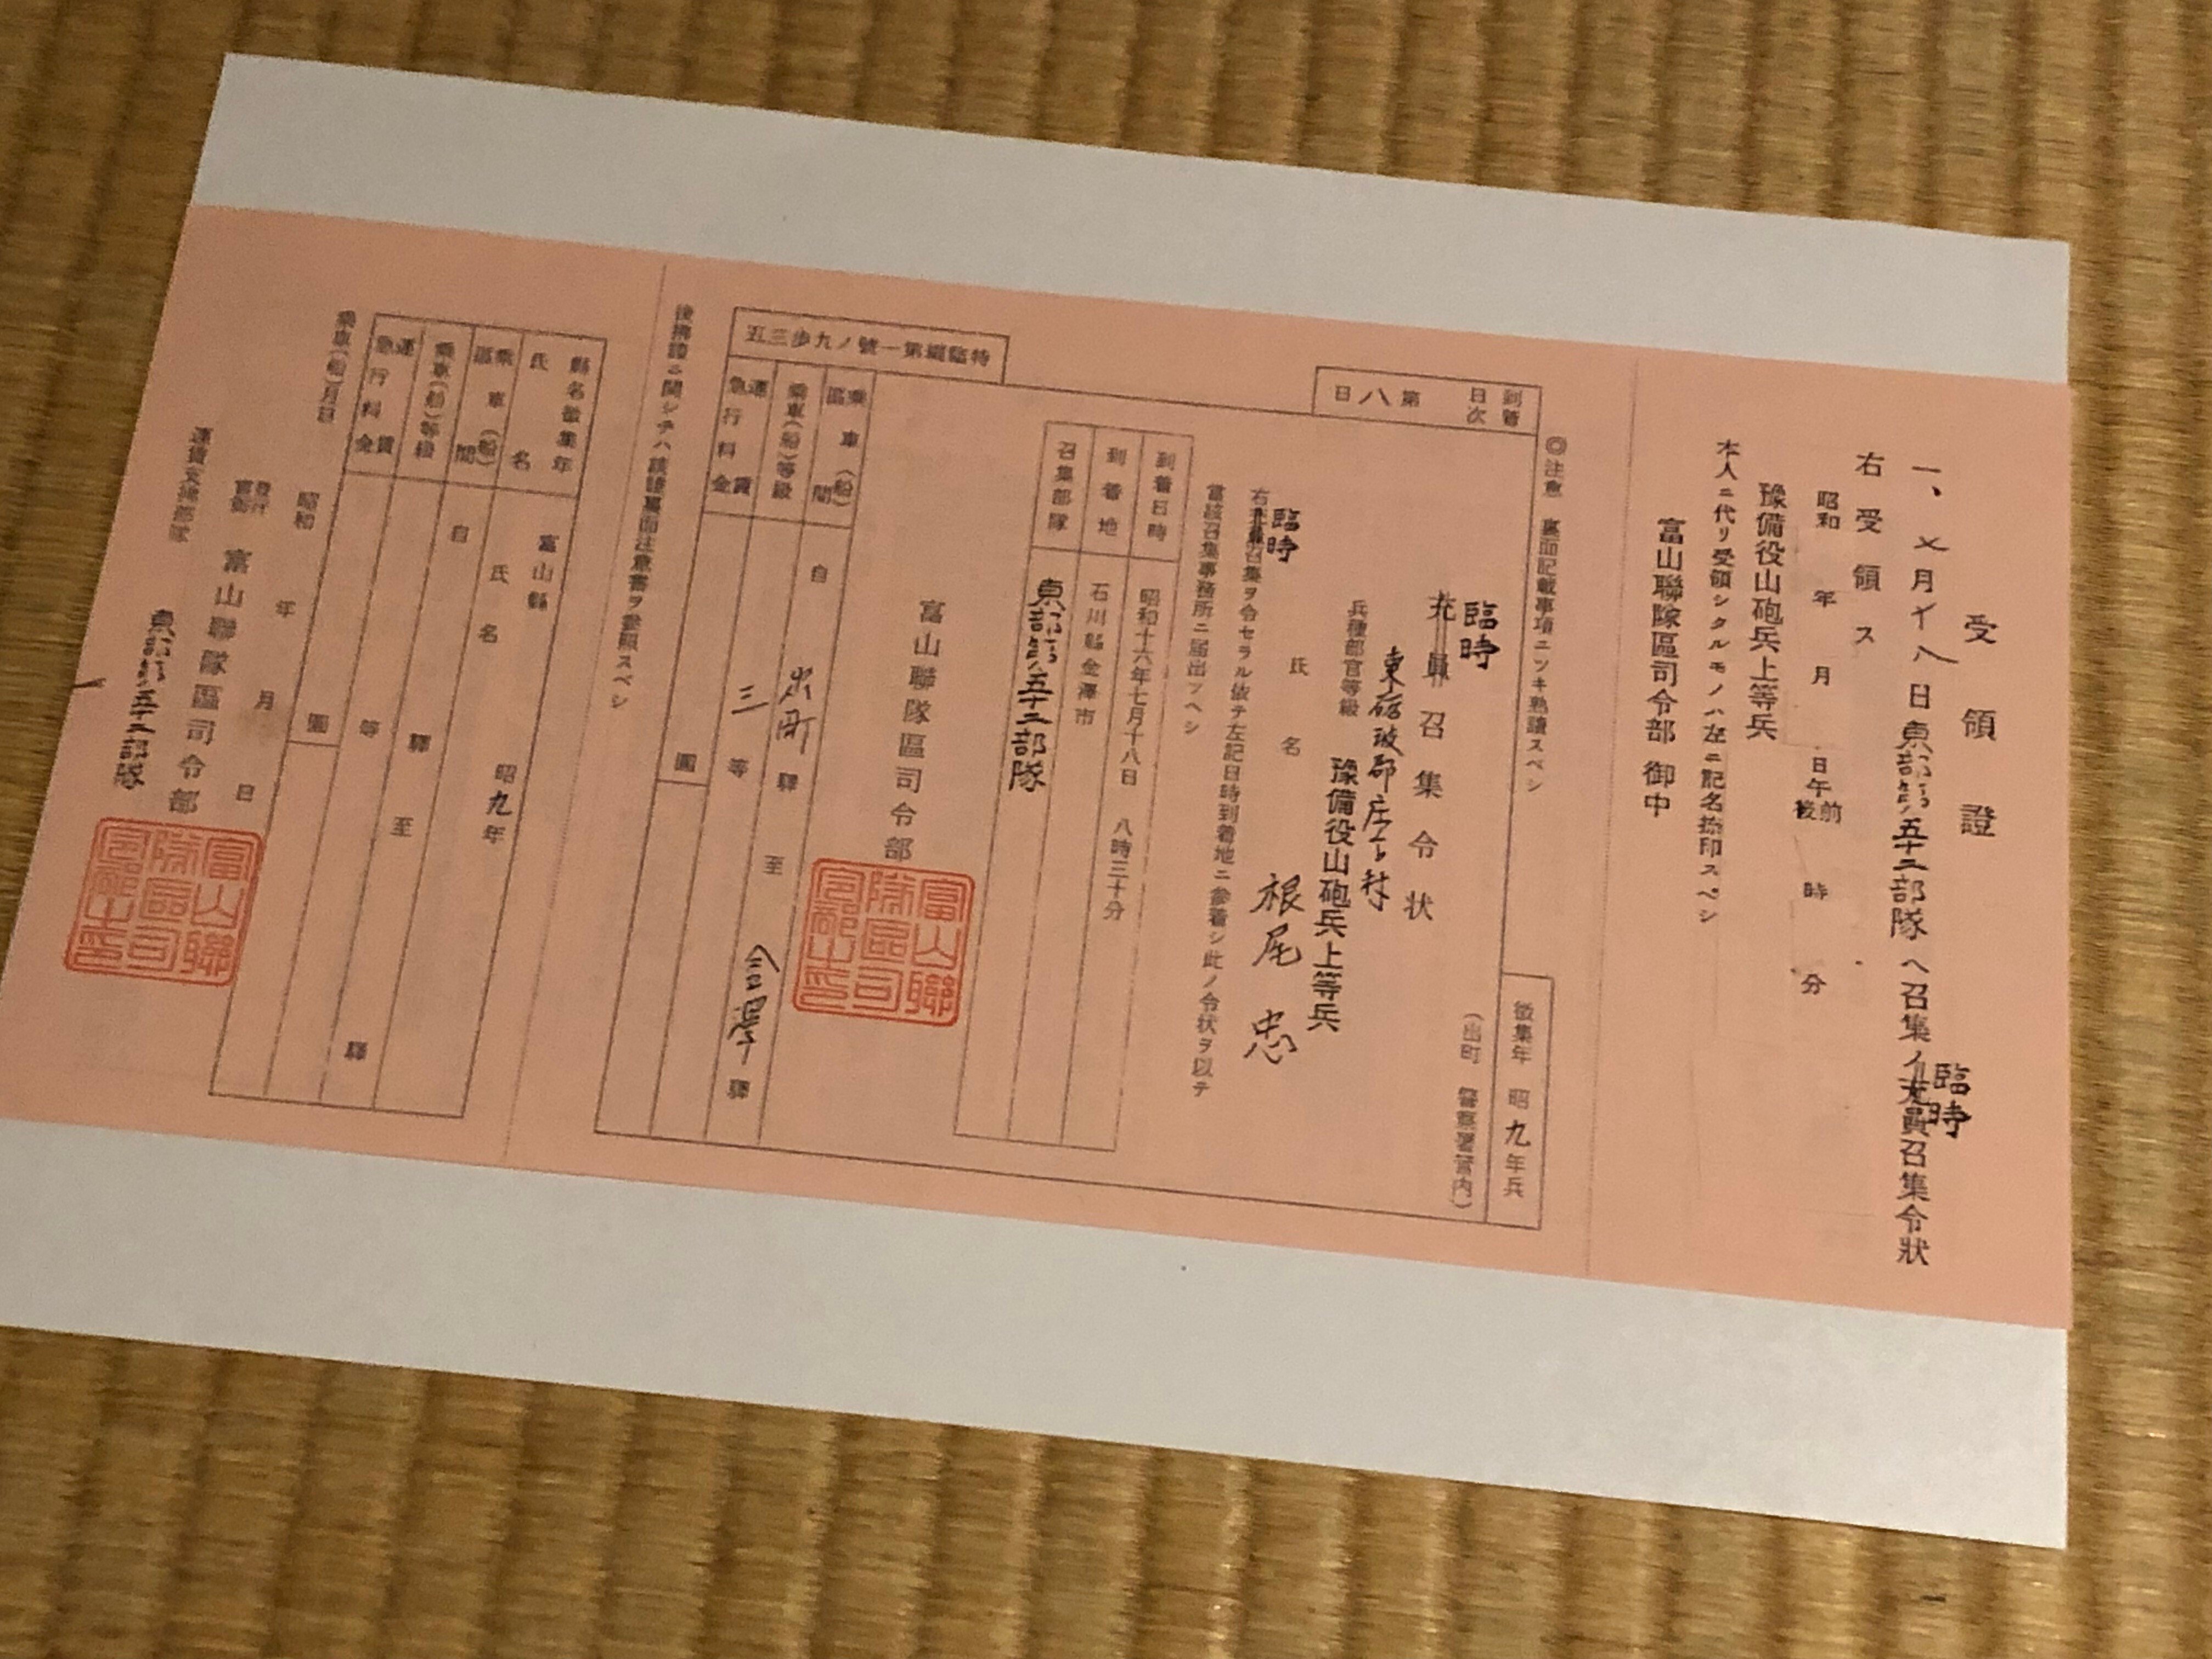 受領證
一、七月十八日東部第五十二部隊ヘ召集ノ充員召集令狀
臨時
右受領ス
昭和 年 月 日午前後 時 分
豫備役山砲兵上等兵
本人ニ代リ受領シタルモノハ左ニ記名捺印スベシ
富山聯隊區司令部 御中
◎注意 裏面記載事項ニツキ熟讀スベシ
到着日次 第八日
徵集年 昭九年兵
(出町 警察署管內)
臨時
充員召集令狀
東礪波郡庄下村
兵種部官等級 豫備役山砲兵上等兵
氏名 根尾忠
臨時
右充員召集ヲ令セラル依テ左記日時到着地ニ參着シ此ノ令狀ヲ以テ
當該召集事務所ニ屆出ツヘシ
到着日時 昭和十六年七月十八日 八時三十分
到着地 石川縣金澤市
召集部隊 東部第五十二部隊
富山聯隊區司令部
富山聯隊區司令部之印
特臨編第一號ノ九步三五
乘車(船)區間 自 出町 驛 至 金澤 驛
乘車(船)等級 三等
運賃急行料金 圓
後拂證ニ關シテハ該證裏面注意書ヲ參照スベシ
縣名徵集年 富山縣 昭九年
氏名 氏名
乘車(船)區間 自 驛 至 驛
乘車(船)等級 等
運賃急行料金 圓
乘車(船)月日 昭和 年 月 日
發行官衙 富山聯隊區司令部
富山聯隊區司令部之印
運賃支拂部隊 東部第五十二部隊